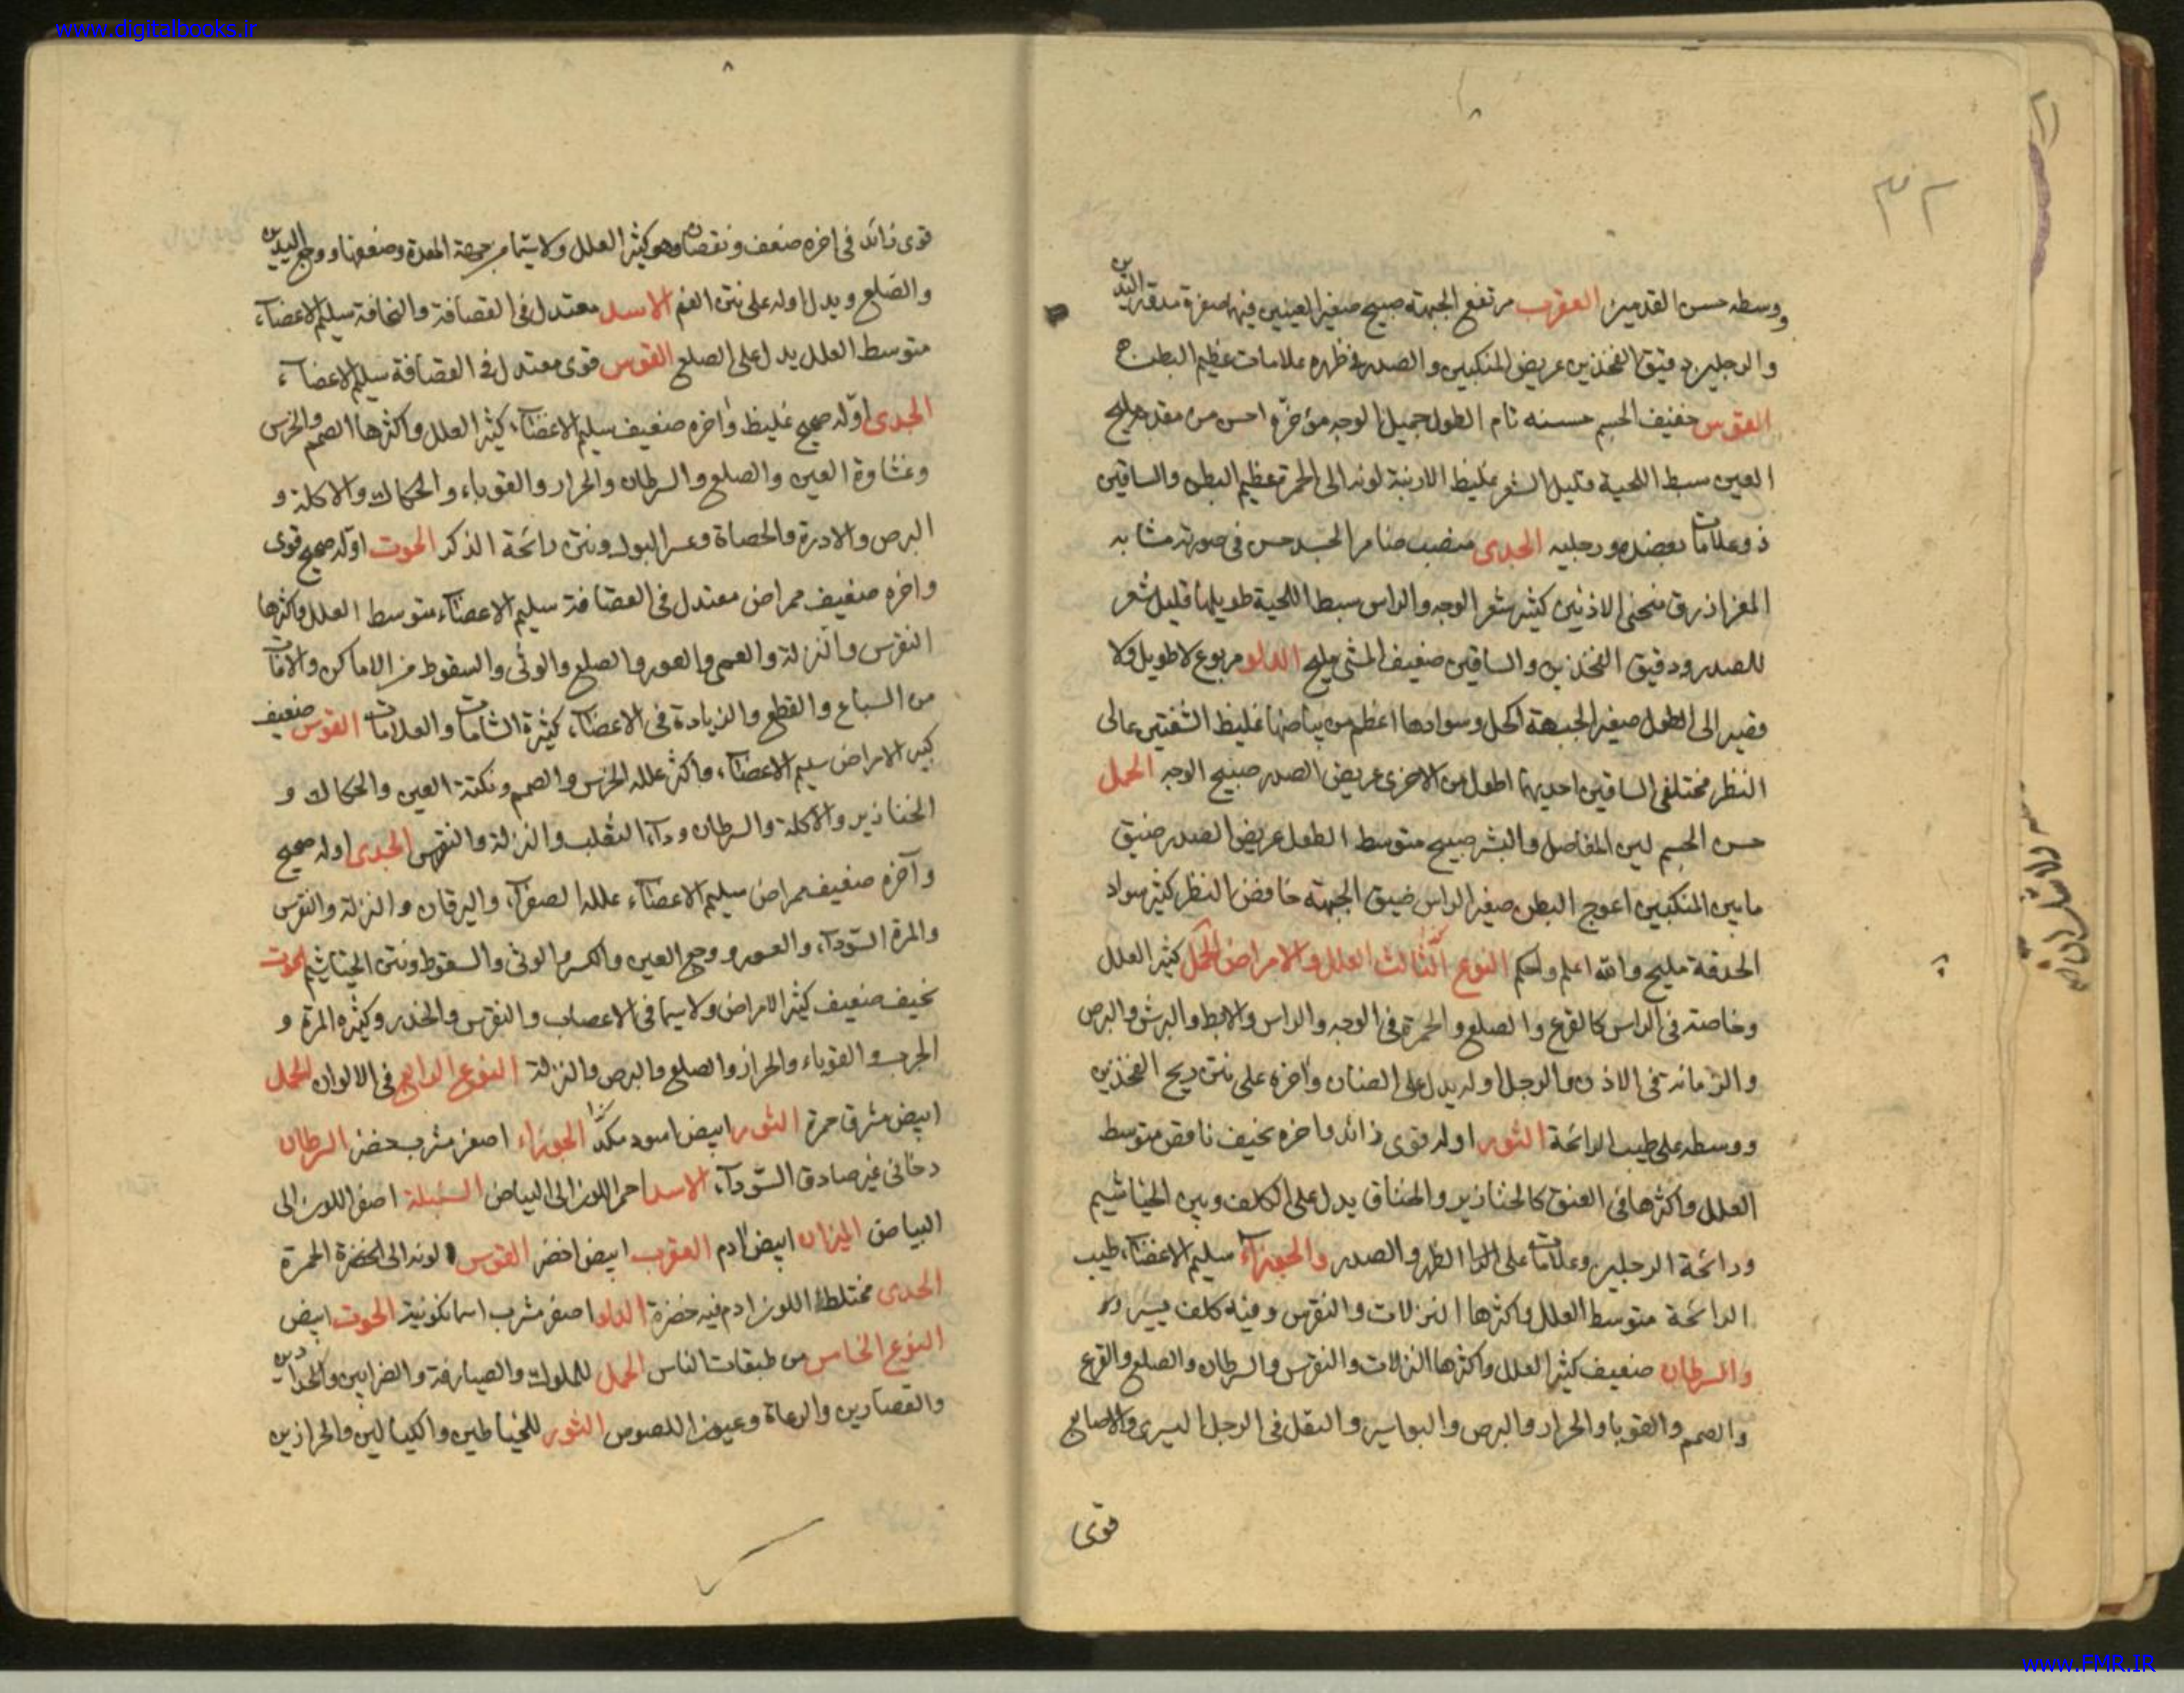 www.digitalbooks.ir
٣٢
ووسطه حسن القدمين العقرب مرتفع الجبهة صبيح صغير العينين فيها صفرة مدقة اليدين
والرجلين دقيق الفخذين عريض المنكبين والصدر في ظهره علامات عظيم البطن
القوس خفيف الجسم حسنه تام الطول جميل الوجه مؤخره احسن من مقدمه مليح
العين سبط اللحية قليل الشعر غليظ الارنبة لونه الى الحمرة عظيم البطن والساقين
ذو علامات بعضده ورجليه الجدى منصب ضامر الجسد حسن في صورته مشابه
المعز ازرق منحنى الاذنين كثير شعر الوجه والراس سبط اللحية طويلها قليل شعر
للصدر ودقيق الفخذين والساقين ضعيف المشى مليح الدلو مربوع لا طويل ولا
قصير الى الطول صغير الجبهة اكحل وسوادها اعظم من بياضها غليظ الشفتين عالى
النظر مختلفى الساقين احديهما اطول من الاخرى عريض الصدر صبيح الوجه الحمل
حسن الجسم لين المفاصل والبشر صبيح متوسط الطول عريض الصدر ضيق
ما بين المنكبين اعوج البطن صغير الراس ضيق الجبهة خافض النظر كثير سواد
الحدقة مليح والله اعلم واحكم النوع الثالث العلل والامراض الحمل كثير العلل
وخاصته في الراس كالقرع والصلع والحمرة في الوجه والراس والابط والبرش والبرص
والزمانة في الاذن والرجل اوله يدل على الصنان واخره على نتن ريح الفخذين
ووسطه على طيب الرائحة الثور اوله قوى زائد واخره نحيف ناقص متوسط
العلل واكثرها في العنق كالخنازير والخناق يدل على الكلف وبين الخياشيم
ورائحة الرجلين وعلامات على الظهر والصدر والجوزآء سليم الاعضآء طيب
الرائحة متوسط العلل واكثرها النزلات والنقرس وفيه كلف يسير
والسرطان ضعيف كثير العلل واكثرها النزلات والنقرس والسرطان والصلع والقرع
والصمم والقوبا والحرار والبرص والبواسير والنقل في الرجل اليسرى والاصابع
قوى
قوى زائد في اخره ضعف ونقصان وهو كثير العلل ولا سيما من جهة المعدة وضعفها ووجع اليدين
والصلع ويدل اوله على نتن الفم الاسد معتدل في القصافة والنحافة سليم الاعضآء
متوسط العلل يدل على الصلع القوس قوى معتدل في القصافة سليم الاعضآء
الجدى اوله صحيح غليظ واخره ضعيف سليم الاعضآء كثير العلل واكثرها الصمم والخرس
وغشاوة العين والصلع والسرطان والحرار والقوباء والحكاك والاكلة و
البرص والادرة والحصاة وعسر البول ونتن رائحة الذكر الحوت اوله صحيح قوى
واخره ضعيف ممراض معتدل في القضافة سليم الاعضآء متوسط العلل واكثرها
النقرس والنزلة والعمى والعور والصلع والوثى والسقوط من الاماكن والآفات
من السباع والقطع والزيادة في الاعضآء كثيرة الشامات والعلامات القوس ضعيف
كبير الامراض سليم الاعضآء واكثر علله الخرس والصمم ونكتة العين والحكاك و
الخنازير والاكلة والسرطان ودآء الثعلب والنزلة والنقرس الجدى اوله صحيح
وآخره ضعيف ممراض سليم الاعضآء علله الصفرآء واليرقان والنزلة والنقرس
والمرة السودآء والعور ووجع العين والكسر والوثى والسقوط ونتن الخياشيم الحوت
نحيف ضعيف كثير الامراض ولا سيما في الاعصاب والنقرس والخدر وكثيره المرة و
الجرب والقوباء والحراز والصلع والبرص والنزلة النوع الرابع في الالوان الحمل
ابيض مشرق حمرة الثور ابيض اسود مكدا الجوزاء اصفر مشرب خضر السرطان
دخانى غير صادق السودآء الاسد احمر اللون الى البياض السنبلة اصفر اللون الى
البياض الميزان ابيض ادم العقرب ابيض اخضر القوس لونه الى الخضرة الحمرة
الجدى مختلط اللون ادم فيه خضرة الدلو اصفر مشرب اسمانكونية الحوت ابيض
النوع الخامس من طبقات الناس الحمل للملوك والصيارفة والضرابين والحدادين
والقصارين والرعاة وعيون اللصوص الثور للخياطين والكيالين والحرازين
www.FMR.IR